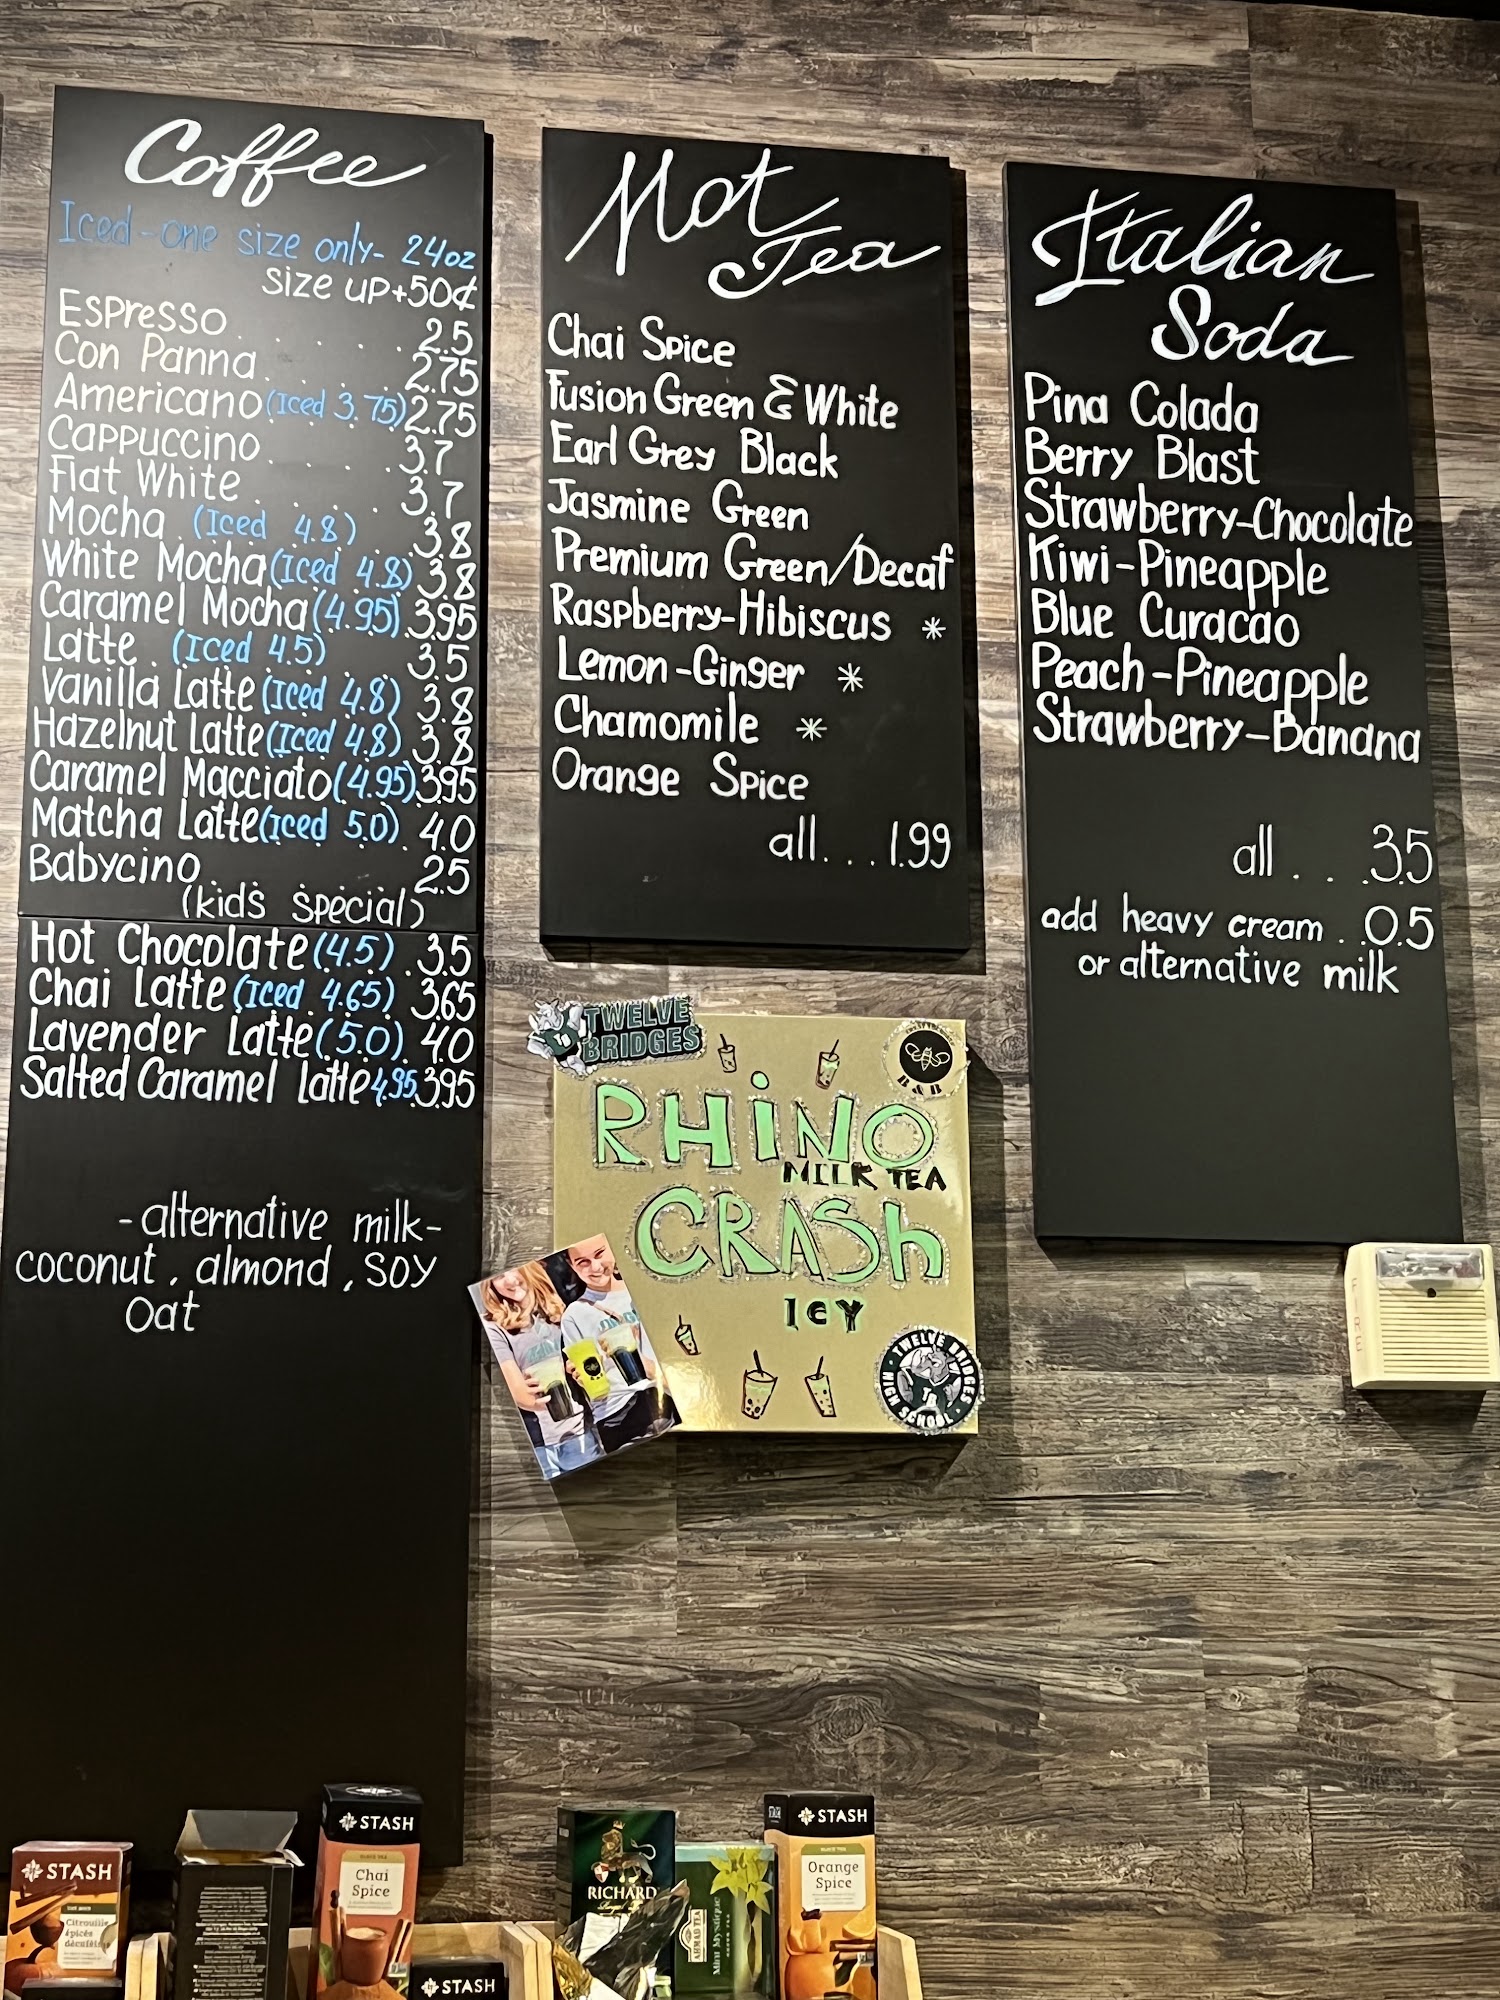 Coffee
Iced - one size only - 24oz
size up +50¢
Espresso . . . . . 2.5
Con Panna . . . . . 2.75
Americano (Iced 3.75) 2.75
Cappuccino . . . . 3.7
Flat White . . . . 3.7
Mocha . (Iced 4.8) . . 3.8
White Mocha (Iced 4.8) 3.8
Caramel Mocha (4.95) 3.95
Latte . (Iced 4.5) . . 3.5
Vanilla Latte (Iced 4.8) 3.8
Hazelnut Latte (Iced 4.8) 3.8
Caramel Macciato (4.95) 3.95
Matcha Latte (Iced 5.0) . 4.0
Babycino . . . . . 2.5
(kids special)
Hot Chocolate (4.5) . 3.5
Chai Latte (Iced 4.65) 3.65
Lavender Latte (5.0) . 4.0
Salted Caramel latte 4.95 3.95
- alternative milk -
coconut, almond, soy
oat
Hot
Tea
Chai Spice
Fusion Green & White
Earl Grey Black
Jasmine Green
Premium Green/Decaf
Raspberry-Hibiscus *
Lemon-Ginger *
Chamomile *
Orange Spice
all . . . 1.99
Italian
Soda
Pina Colada
Berry Blast
Strawberry-Chocolate
Kiwi-Pineapple
Blue Curacao
Peach-Pineapple
Strawberry-Banana
all . . . 3.5
add heavy cream . . 0.5
or alternative milk
TWELVE
BRIDGES
B & B
RHINO
MILK TEA
CRASh
ICY
TWELVE BRIDGES
HIGH SCHOOL
FIRE
STASH
Citrouille
épices
décaféiné
STASH
Chai
Spice
STASH
RICHARD
Royal
AHMAD TEA
Mint Mystique
GREEN TEA
STASH
Orange
Spice